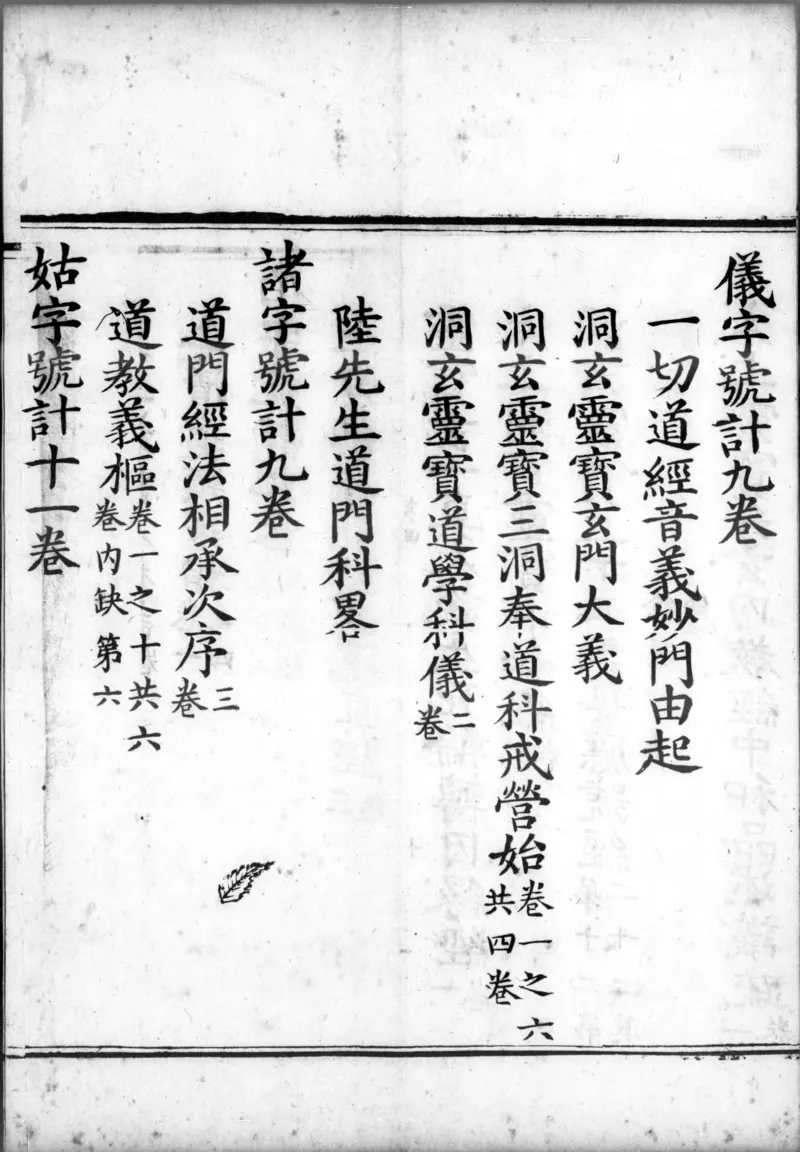 儀字號計九卷
一切道經音義妙門由起
洞玄靈寶玄門大義
洞玄靈寶三洞奉道科戒營始卷一之六共四卷
洞玄靈寶道學科儀二卷
陸先生道門科畧
諸字號計九卷
道門經法相承次序三卷
道教義樞卷一之十共六卷內缺第六
姑字號計十一卷